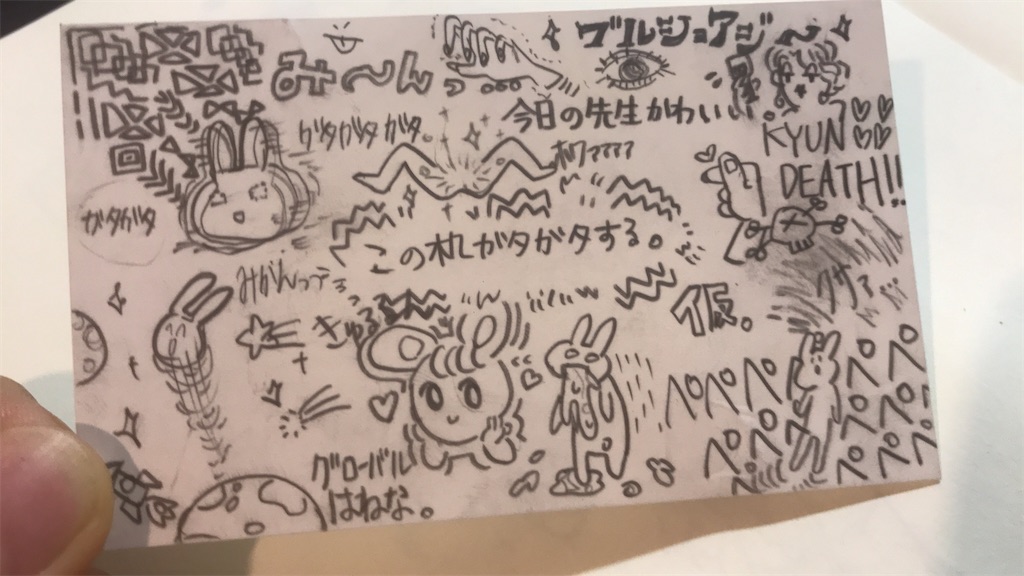 ブルジョアジ〜
み〜ん
今日の先生かわいい。
ガタガタガタ。
KYUN
DEATH!!
ガタガタ
この机ガタガタする。
みかんってさ
きゅる
仮。
ペペペ
ペペペ
ペペペ
ペペペ
グローバル
はねな。